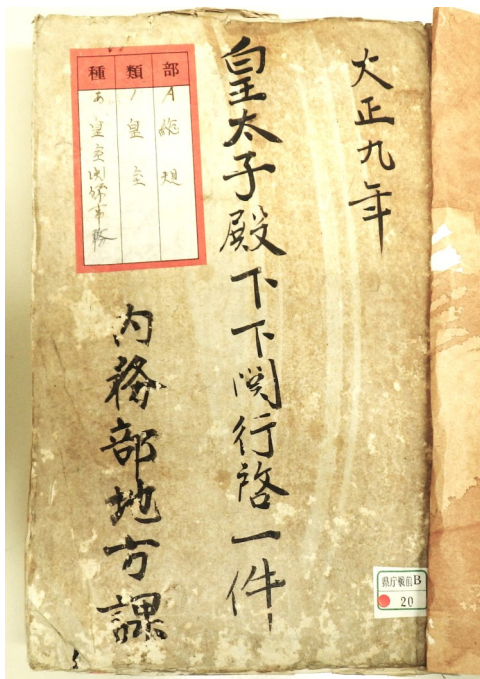 大正九年
皇太子殿下下関行啓一件
内務部地方課
部 類 種
A 総規
1 皇室
あ 皇室関係事務
県庁戦前B
20